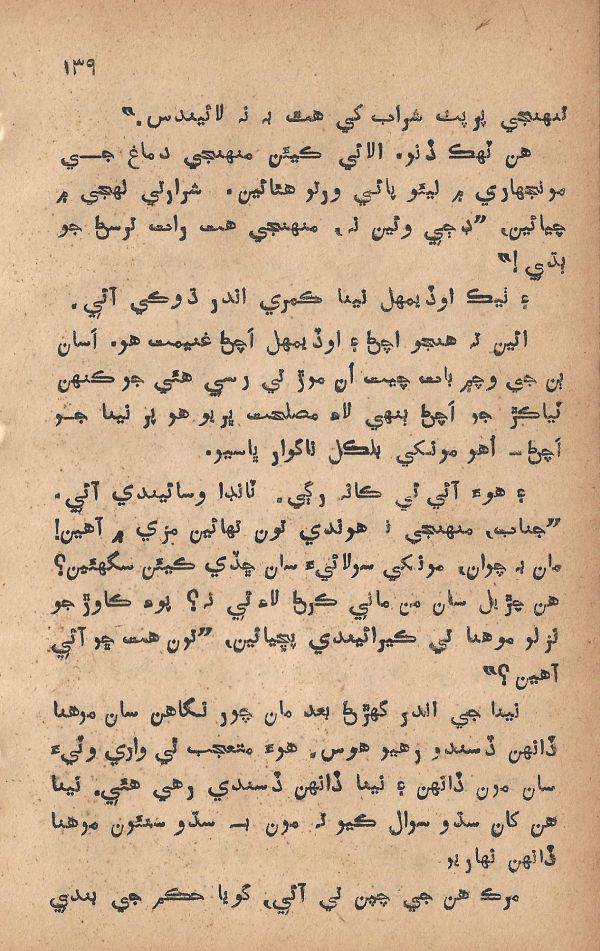 ١٣٩
تنهنجي پرپٺ شراب کي هٿ به نه لائيندس.”
هن ٽهڪ ڏنو. الائي ڪيئن منهنجي دماغ جــي
مونجهاري ۾ ليئو پائي ورتو هئائين. شرارتي لهجي ۾
چيائين، ”ڊڄي وئين نه، منهنجي هت رات ترسڻ جو
ٻڌي!“
۽ ٺيڪ اوڏيمهل نينا ڪمري اندر ڌوڪي آئي.
ائين ته هنجو اچڻ ۽ اوڏيمهل اچڻ غنيمت هو. اَسان
ٻن جي وچ۾ بات چيت اُن موڙ تي رسي هئي جو ڪنهن
ٽياڪڙ جو اَچڻ ٻنهي لاءِ مصلحت ڀريو هو پر نينا جـو
اَچڻ ــ اُهو مونکي بلڪل ناگوار ڀاسيو.
۽ هوءَ آئي ئي ڪانہ رڳي. ٽانڊا وسائيندي آئي.
”جناب، منهنجي نہ هوندي تون نهائين مزي ۾ آهين!
مان بہ چوان، مونکي سولائيءَ سان ڇڏي ڪيئن سگهئين؟
هن چڙيل سان من ماني ڪرڻ لاءِ ئي نہ؟ پوءِ ڪاوڙ جو
نزلو موهنا تي ڪيرائيندي پڇيائين، ”تون هت ڇو آئي
آهين؟“
نينا جي اندر گهڙڻ بعد مان چور نگاهن سان موهنا
ڏانهن ڏسندو رهيو هوس. هوءَ متعجب ٿي واري وٽيءَ
سان مون ڏانهن ۽ نينا ڏانهن ڏسندي رهي هئي. نينا
هن کان سڌو سوال ڪيو تہ مون بہ ــ سڌو سنئون موهنا
ڏانهن نهاريو
مرڪ هن جي چپن تي آئي، گويا حڪم جي ٻندي